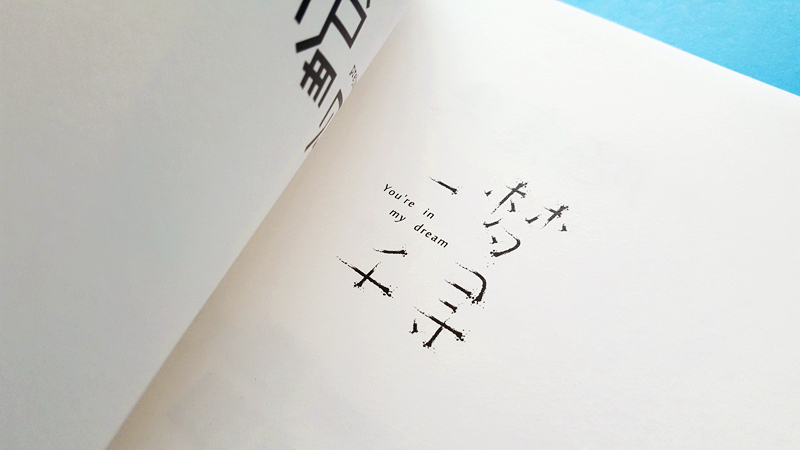 一梦
You're in
my dream
千寻